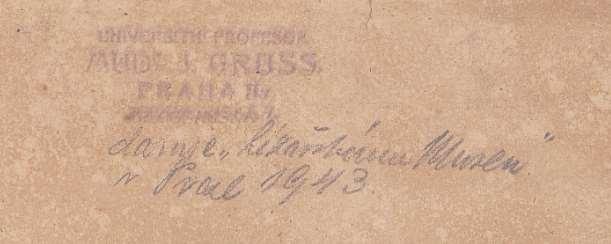 UNIVERSITNÍ PROFESOR
MUDr. J. GRUSS.
PRAHA II.,
daruje „Lékařskému Museu“
v Praze 1943.